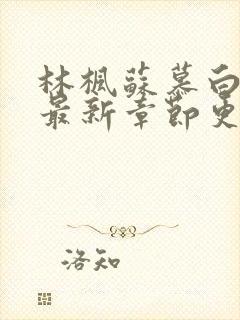 林楓蘇慕白
最新章節更
洛知